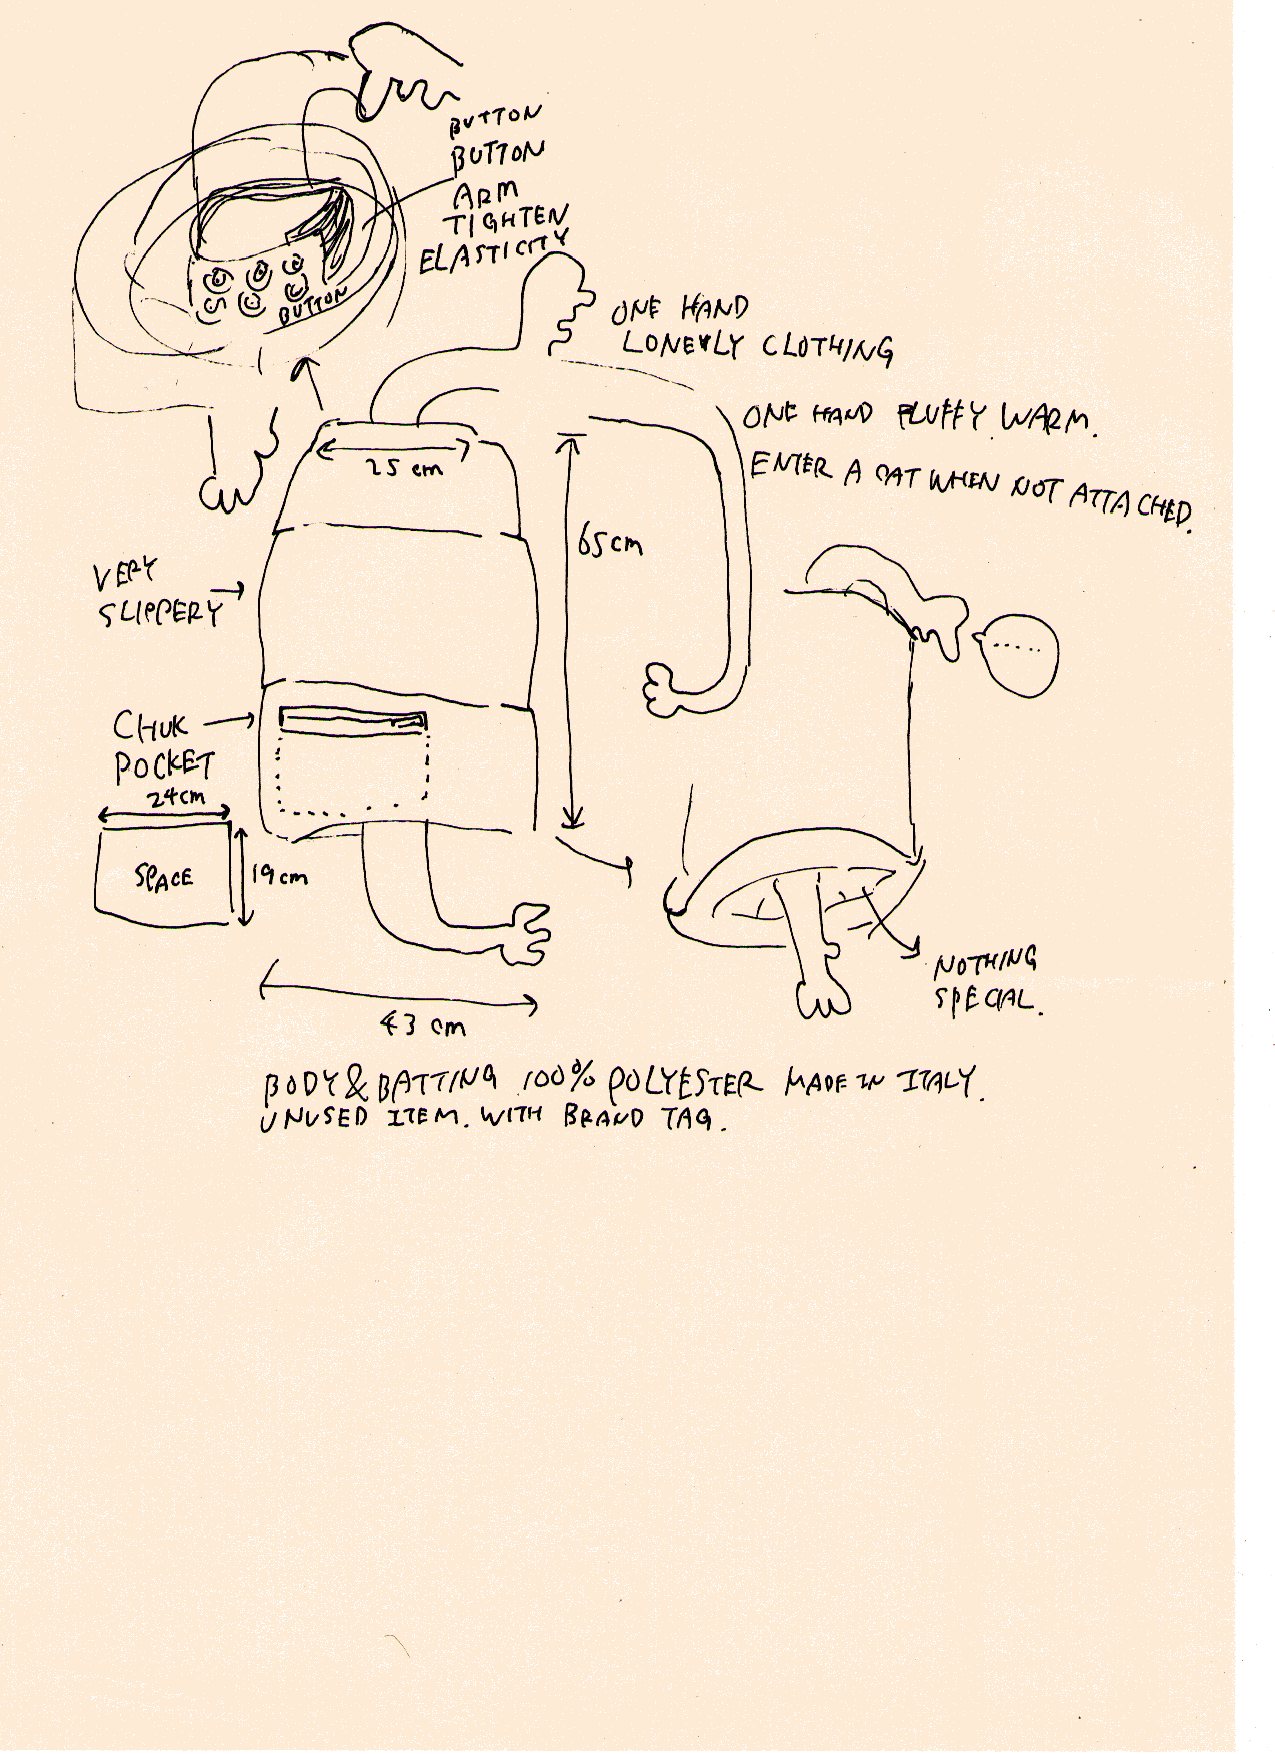 BUTTON
BUTTON
ARM
TIGHTEN
ELASTICITY
BUTTON
ONE HAND
LONELY CLOTHING
ONE HAND FLUFFY WARM.
ENTER A CAT WHEN NOT ATTACHED.
25 cm
65cm
VERY
SLIPPERY
CHUK
POCKET
24cm
SPACE
19cm
.....
NOTHING
SPECIAL.
43 cm
BODY & BATTING 100% POLYESTER MADE IN ITALY.
UNUSED ITEM. WITH BRAND TAG.